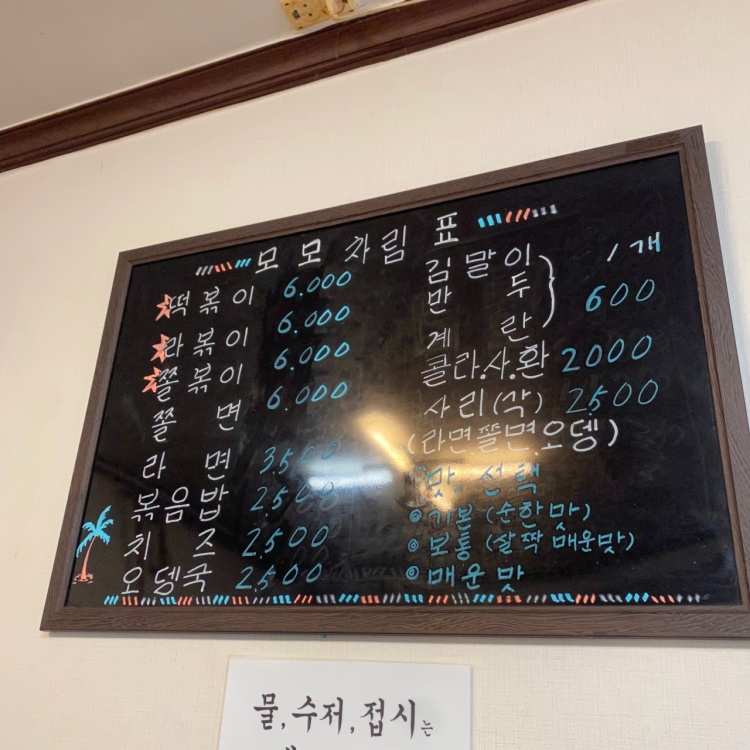 모모차림표
떡볶이 6.000
라볶이 6.000
쫄볶이 6.000
쫄면 6.000
라면 3.500
볶음밥 2.500
치즈 2.500
오뎅국 2.500
김말이
만두
계란
1개
600
콜라.사.환 2000
사리(각) 2500
(라면.쫄면.오뎅)
맛 선택
◎기본(순한맛)
◎보통(살짝 매운맛)
◎매운맛
물, 수저, 접시는